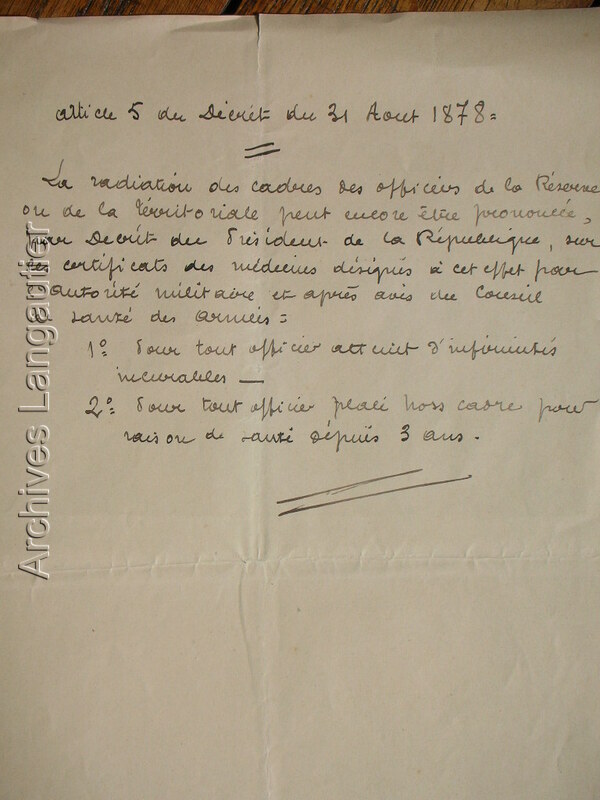 article 5 du Décrét du 31 Aout 1878=
La radiation des cadres des officiers de la Réserve
ou de la térritoriale peut encore être prononcée,
par Decrét du Président de la République, sur
les certificats des médecins désignés à cet effet par
autorité militaire et après avis du Conseil
santé des armées =
1º Pour tout officier atteint d'infirmités
incurables —
2º Pour tout officier placé hors cadre pour
raison de santé dépuis 3 ans.
Archives Langartier